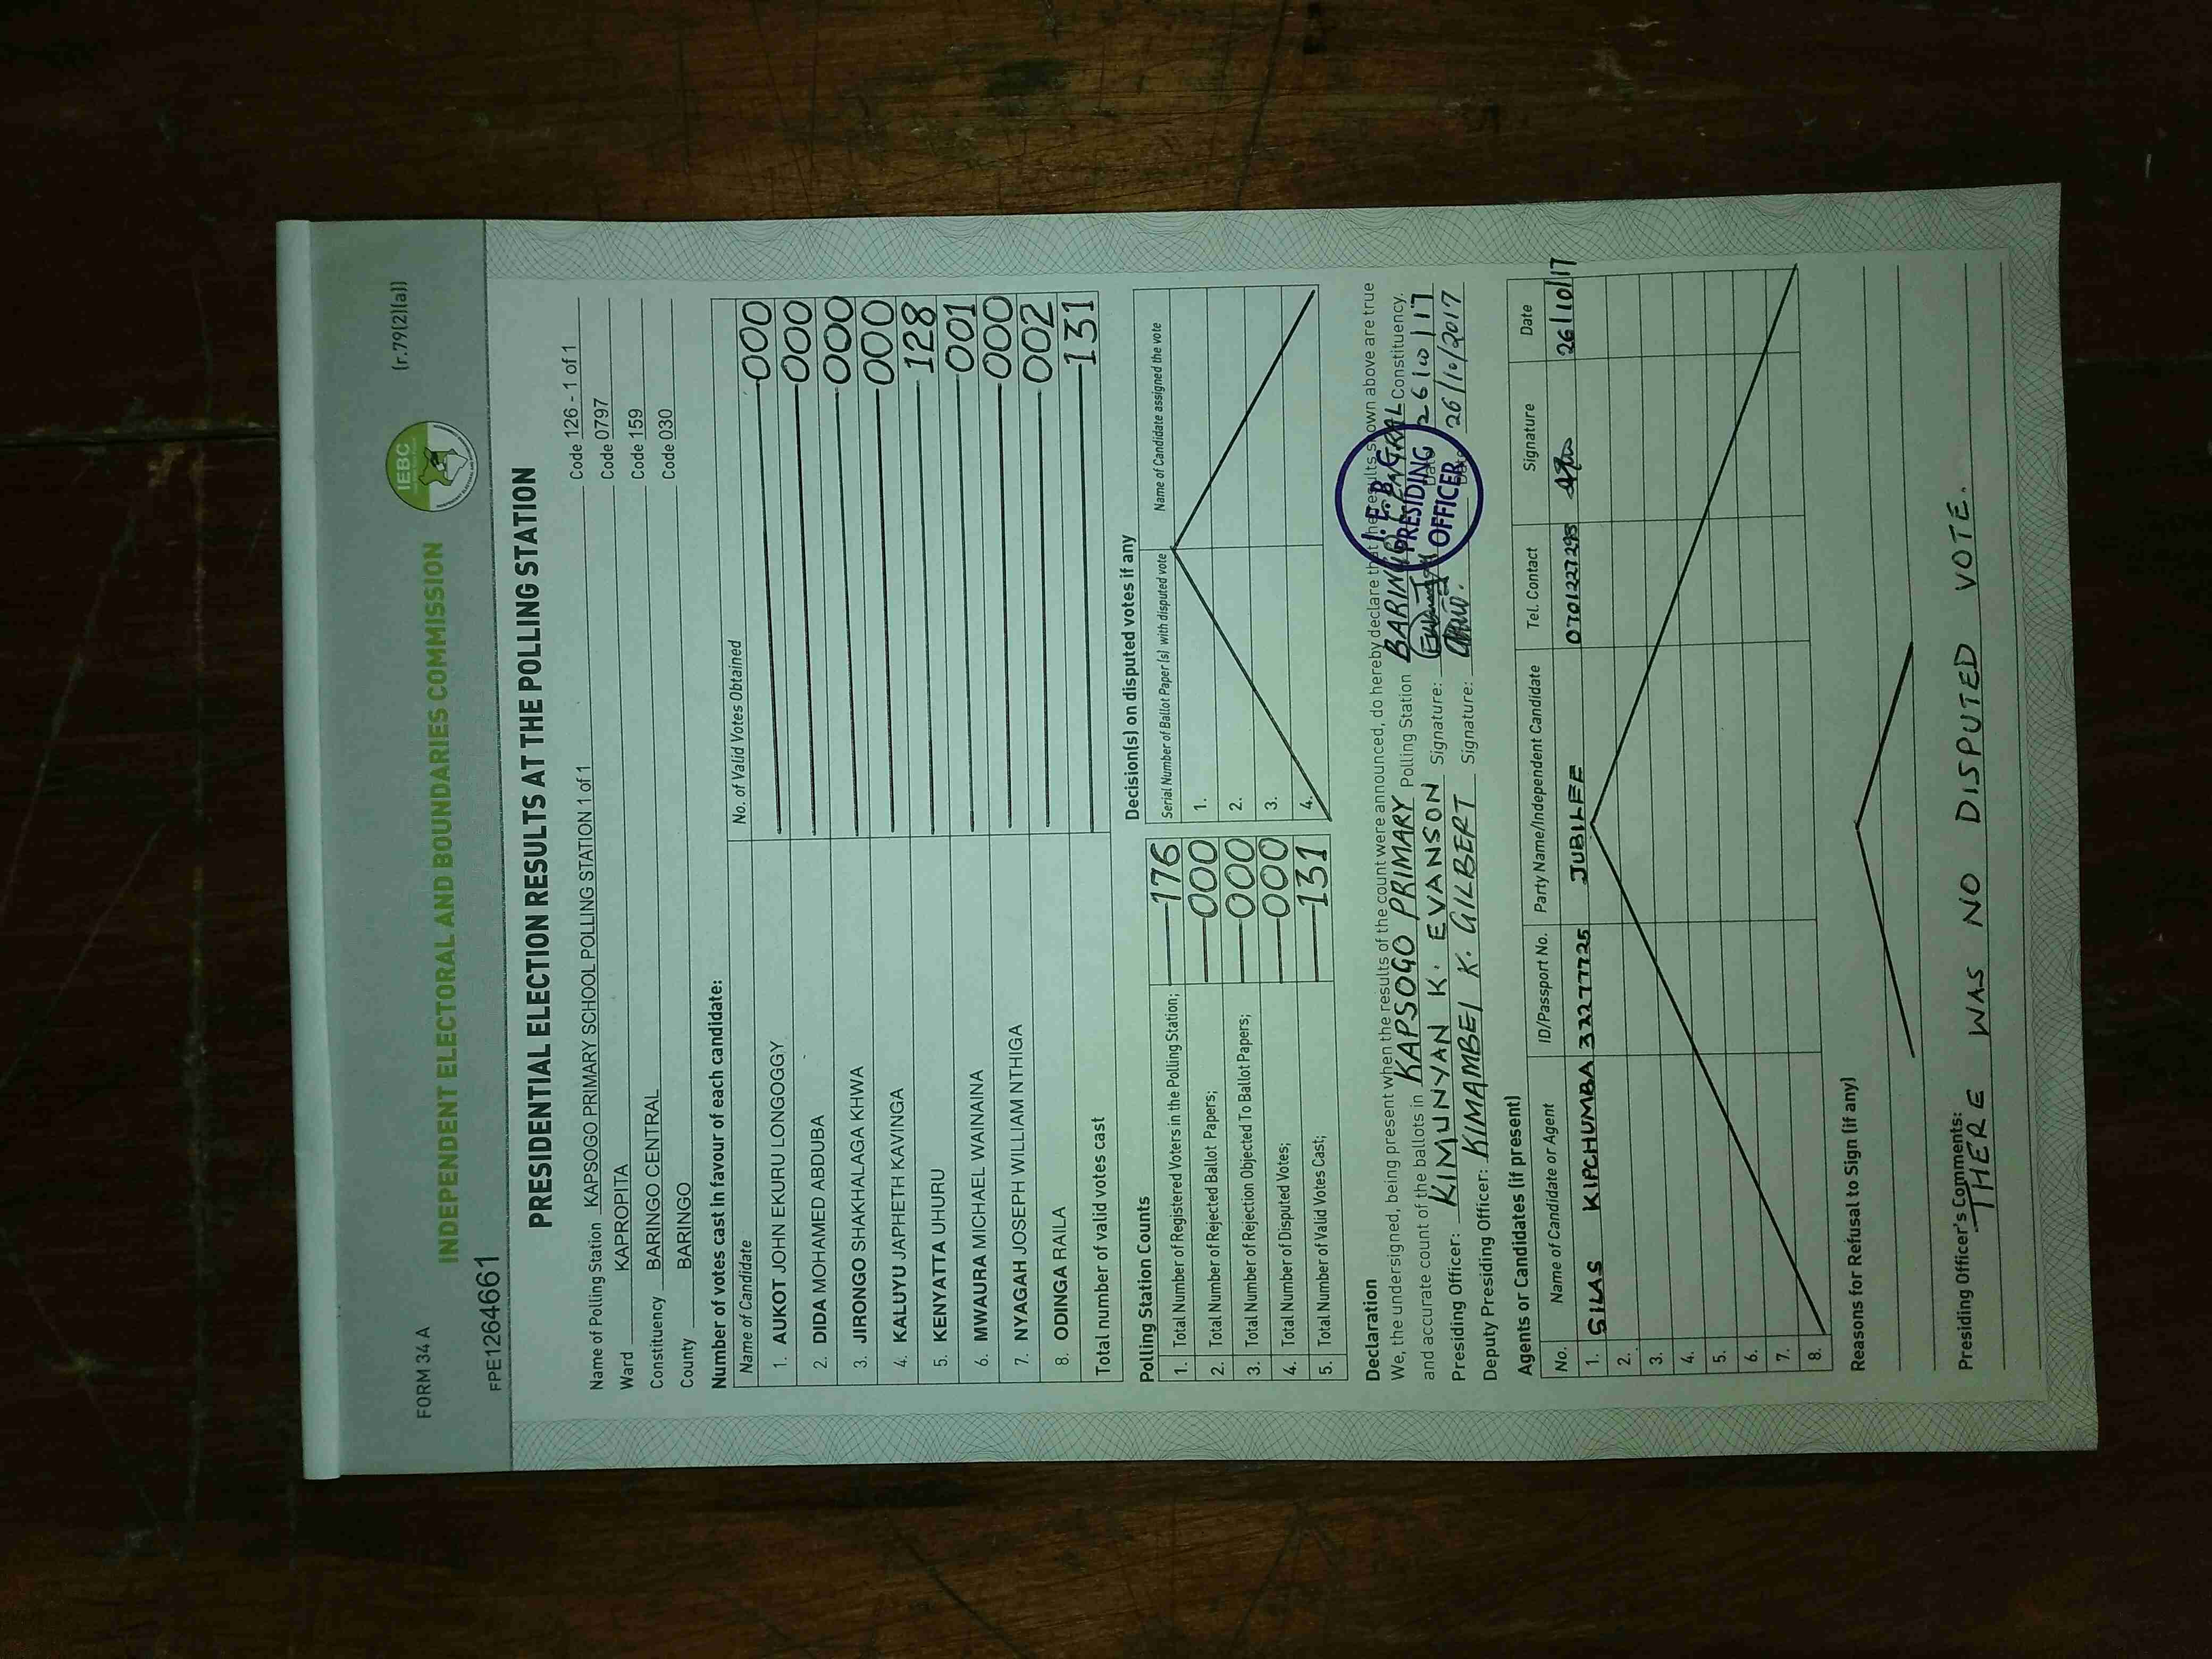 FORM 34 A
(r.79(2)(a))
IEBC
INDEPENDENT ELECTORAL AND BOUNDARIES COMMISSION
FPE1264661
PRESIDENTIAL ELECTION RESULTS AT THE POLLING STATION
Name of Polling Station KAPSOGO PRIMARY SCHOOL POLLING STATION 1 of 1 Code 126 - 1 of 1
Ward KAPROPITA Code 0797
Constituency BARINGO CENTRAL Code 159
County BARINGO Code 030
Number of votes cast in favour of each candidate:
Name of Candidate No. of Valid Votes Obtained
1. AUKOT JOHN EKURU LONGOGGY 000
2. DIDA MOHAMED ABDUBA 000
3. JIRONGO SHAKHALAGA KHWA 000
4. KALUYU JAPHETH KAVINGA 000
5. KENYATTA UHURU 128
6. MWAURA MICHAEL WAINAINA 001
7. NYAGAH JOSEPH WILLIAM NTHIGA 000
8. ODINGA RAILA 002
Total number of valid votes cast 131
Polling Station Counts
1. Total Number of Registered Voters in the Polling Station; 176
2. Total Number of Rejected Ballot Papers; 000
3. Total Number of Rejection Objected To Ballot Papers; 000
4. Total Number of Disputed Votes; 000
5. Total Number of Valid Votes Cast; 131
Decision(s) on disputed votes if any
Serial Number of Ballot Paper(s) with disputed vote Name of Candidate assigned the vote
1.
2.
3.
4.
Declaration
We, the undersigned, being present when the results of the count were announced, do hereby declare that the results shown above are true
and accurate count of the ballots in KAPSOGO PRIMARY Polling Station BARINGO CENTRAL Constituency.
Presiding Officer: KIMUNYAN K. EVANSON Signature: Date 26/10/17
Deputy Presiding Officer: KIMAMBEI K. GILBERT Signature: Date 26/10/2017
I.E.B.C
PRESIDING
OFFICER
Agents or Candidates (if present)
No. Name of Candidate or Agent ID/Passport No. Party Name/Independent Candidate Tel. Contact Signature Date
1. SILAS KIPCHUMBA 32277725 JUBILEE 0701227295 26/10/17
2.
3.
4.
5.
6.
7.
8.
Reasons for Refusal to Sign (if any)
Presiding Officer's Comments:
THERE WAS NO DISPUTED VOTE.